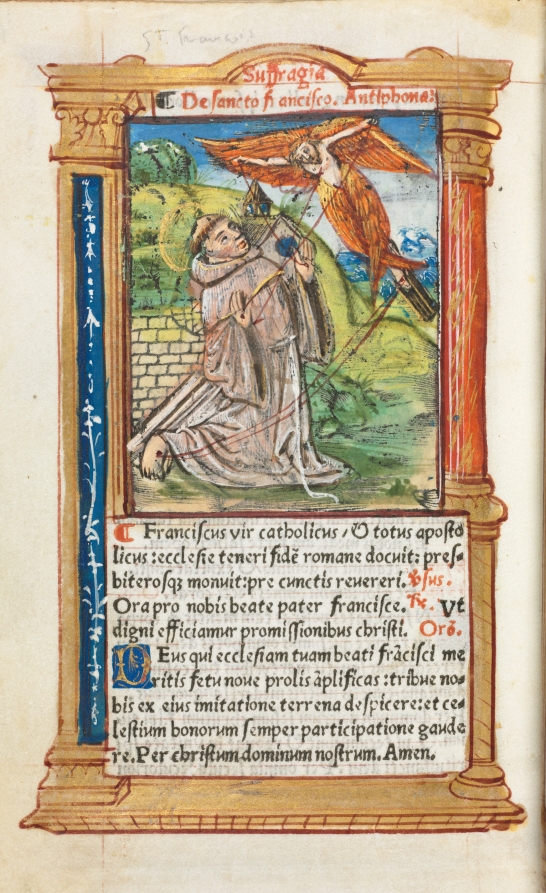 ST. Francis
Suffragia
¶ De sancto francisco. Antiphona:
¶ Franciscus vir catholicus / & totus aposto
licus : ecclesie teneri fidē romane docuit: pres-
biterosqȝ monuit: pre cunctis revereri. ℣sus.
Ora pro nobis beate pater francisce. ℟. Vt
digni efficiamur promissionibus christi. Orō.
DEus qui ecclesiam tuam beati frācisci me
ritis fetu noue prolis āplificas : tribue no-
bis ex eius imitatione terrena despicere: et ce-
lestium bonorum semper participatione gaude
re. Per christum dominum nostrum. Amen.